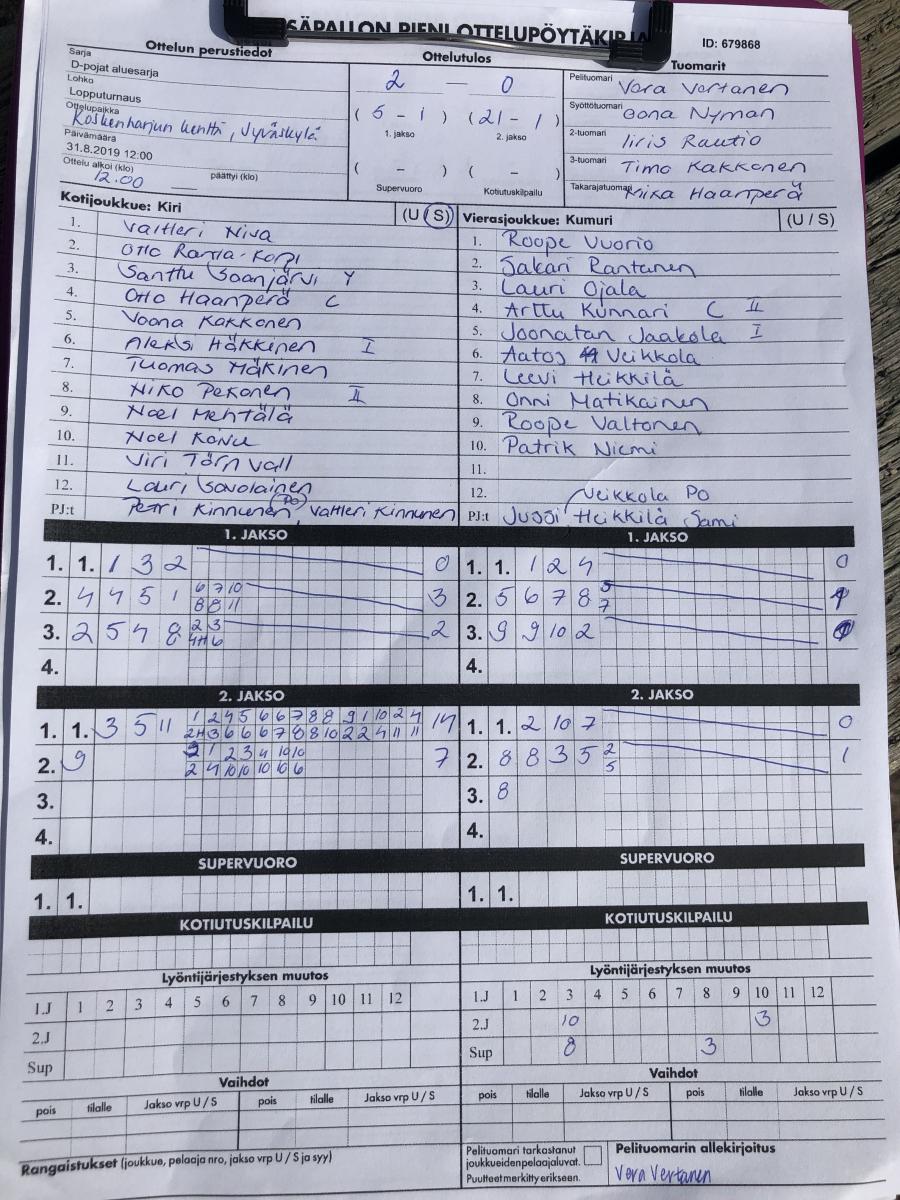 SÄPALLON PIENI OTTELUPÖYTÄKIRJA
ID: 679868
Ottelun perustiedot
Sarja
D-pojat aluesarja
Lohko
Lopputurnaus
Ottelupaikka
Koskenharjun kenttä, Jyväskylä
Päivämäärä
31.8.2019 12:00
Ottelu alkoi (klo) 12.00 päättyi (klo)
Ottelutulos
2 — 0
( 5 - 1 ) ( 21 - 1 )
1. jakso 2. jakso
( - ) ( - )
Supervuoro Kotiutuskilpailu
Tuomarit
Pelituomari Vera Vertanen
Syöttötuomari Oona Nyman
2-tuomari Iiris Rautio
3-tuomari Timo Kakkonen
Takarajatuomari Miika Haanperä
Kotijoukkue: Kiri (U / S)
1. Valtteri Niva
2. Otto Ranta-Korpi
3. Santtu Soanjärvi Y
4. Otto Haanperä C
5. Voona Kakkonen
6. Aleksi Häkkinen I
7. Tuomas Mäkinen
8. Niko Pekonen II
9. Noel Mehtälä
10. Noel Konu
11. Viri Törnvall
12. Lauri Savolainen
PJ:t Petri Kinnunen (PO), Valtteri Kinnunen
Vierasjoukkue: Kumuri (U / S)
1. Roope Vuorio
2. Sakari Rantanen
3. Lauri Ojala
4. Arttu Kunnari C II
5. Joonatan Jaakola I
6. Aatos Veikkola
7. Leevi Heikkilä
8. Onni Matikainen
9. Roope Valtonen
10. Patrik Niemi
11.
12. Veikkola PO
PJ:t Jussi Heikkilä Sami
1. JAKSO
1. 1. 1 3 2 0
6 7 10
2. 4 4 5 1 3
8 8 11
2 3
3. 2 5 7 8 2
4H 6
4.
1. JAKSO
1. 1. 1 2 4 0
2. 5 6 7 8 5 1
7
3. 9 9 10 2
4.
2. JAKSO
1 2 4 5 6 6 7 8 8 9 1 10 2 4
1. 1. 3 5 11 14
2H 3 6 6 6 7 8 8 10 2 2 4 11 11
2 1 2 3 4 10 10
2. 9 7
2 4 10 10 10 10 6
3.
4.
2. JAKSO
1. 1. 2 10 7 0
2. 8 8 3 5 2 1
5
3. 8
4.
SUPERVUORO
1. 1.
SUPERVUORO
1. 1.
KOTIUTUSKILPAILU
KOTIUTUSKILPAILU
Lyöntijärjestyksen muutos
1.J 1 2 3 4 5 6 7 8 9 10 11 12
2.J
Sup
Lyöntijärjestyksen muutos
1.J 1 2 3 4 5 6 7 8 9 10 11 12
2.J 10 3
Sup 8 3
Vaihdot
pois tilalle Jakso vrp U / S pois tilalle Jakso vrp U / S
Vaihdot
pois tilalle Jakso vrp U / S pois tilalle Jakso vrp U / S
Rangaistukset (joukkue, pelaaja nro, jakso vrp U / S ja syy)
Pelituomari tarkastanut
joukkueiden pelaajaluvat.
Puutteet merkitty erikseen.
Pelituomarin allekirjoitus
Vera Vertanen